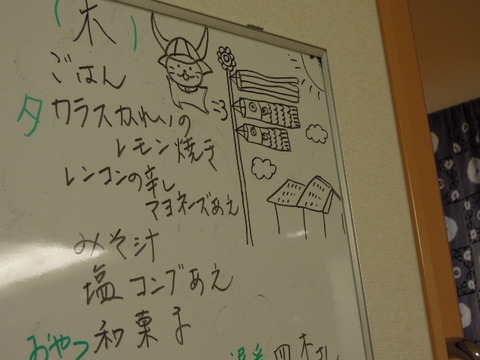 (木)
ごはん
夕 カラスカれいの
レモン焼き
レンコンの辛し
マヨネーズあえ
みそ汁
塩コンブあえ
おやつ 和菓子